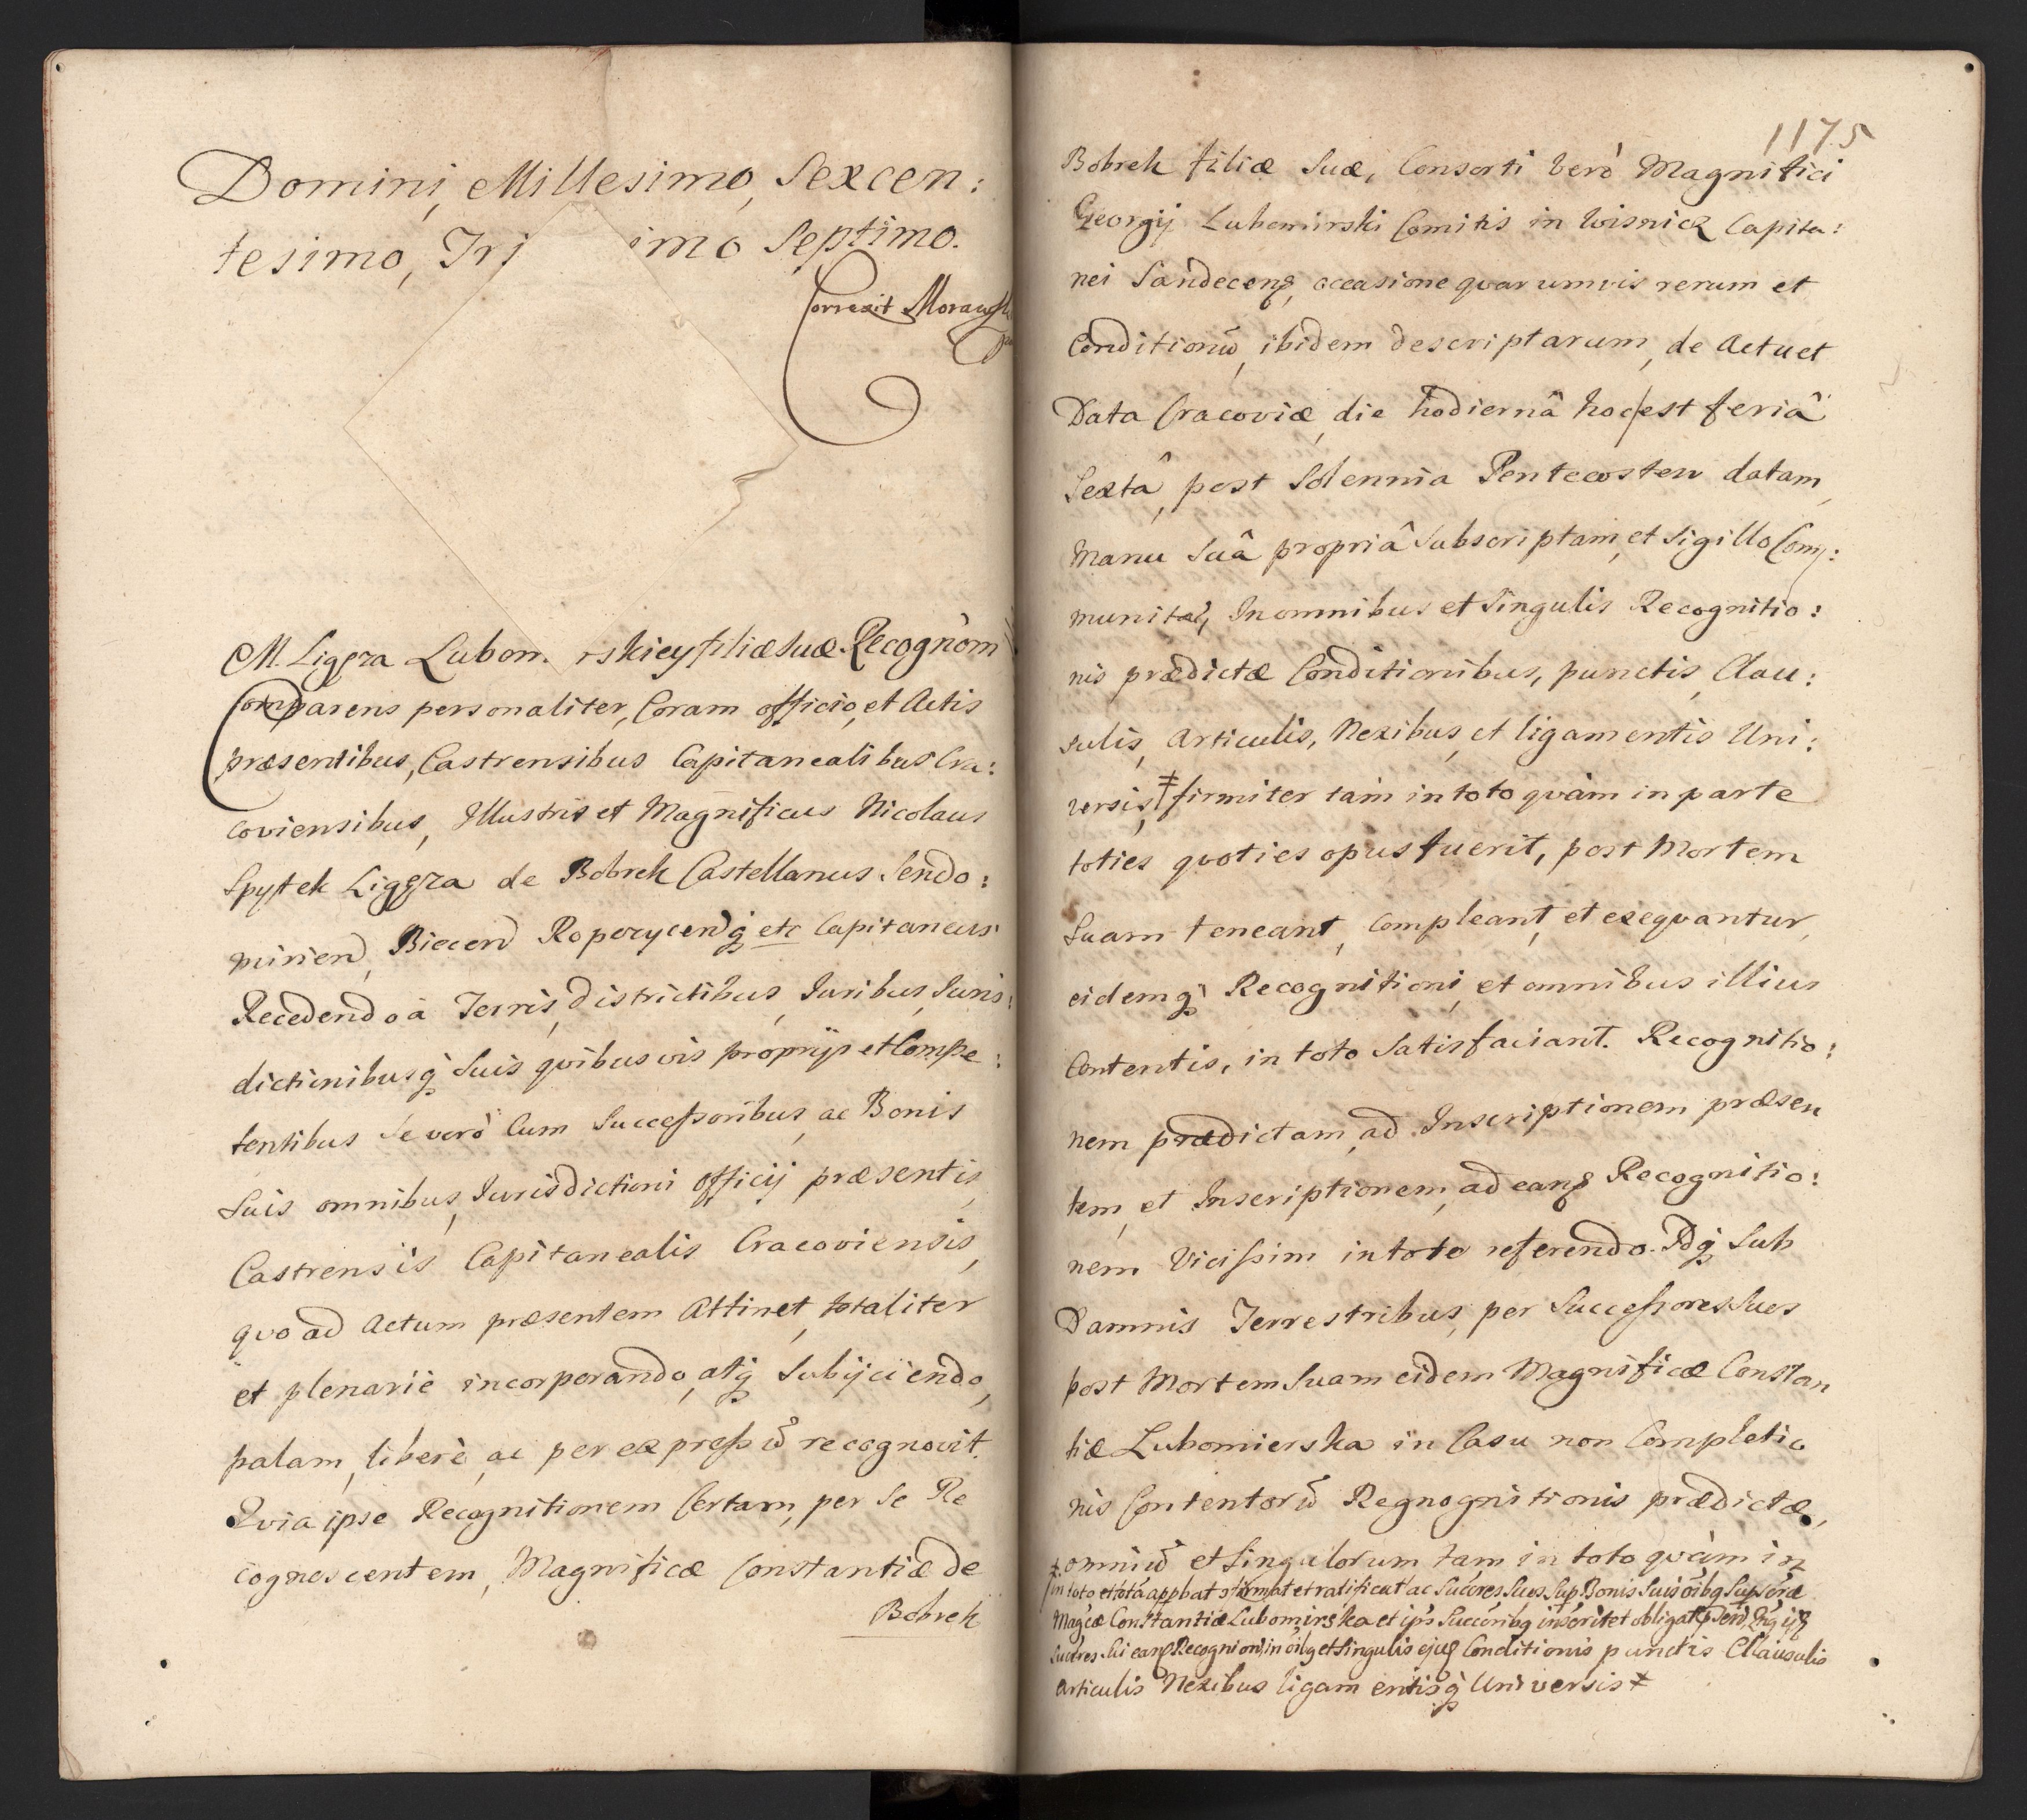 Domini, Millesimo, Sexcen:
tesimo, Tri imo Septimo.
Correxit
M. Ligęza Lubom. rskiey filiæ suæ Recognöm
Comparens personaliter, Coram officio, et Actis
præsentibus, Castrensibus Capitanealibus Cra:
coviensibus, Illustris et Magnificus Nicolaus
Spytek Ligęza de Bobrek Castellanus Sendo:
mirien, Biecen Ropczycenq etc Capitaneus
Recedendo à Terris, districtibus, Juribus, Juris:
dictionibusq suis qvibusvis proprijs et Compe:
tentibus se verò Cum Successoribus, ac Bonis
suis omnibus, Jurisdictioni officij præsentis,
Castrensis Capitanealis Cracoviensis,
qvo ad Actum præsentem Attinet, totaliter
et plenarie incorporando, atq subijciendo,
palam, liberè, ac per expressũ recognovit.
Qvia ipse Recognitionem Certam, per se Re
cognoscentem, Magnificæ Constantiæ de
Bobrek
1175
Bobrek filiæ Suæ, Consorti verò Magnifici
Georgij Lubomirski Comitis in Wisnicz Capita:
nei Sandecens, occasione qvarumvis rerum et
Conditionũ, ibidem descriptarum, de Actu et
Data Cracoviæ, die hodiernâ hoc est feriâ
Sextâ, post Solennia Pentecosten datam,
Manu Suâ propriâ Subscriptam, et Sigillo Com:
munitã, In omnibus et Singulis Recognitio:
nis prædictæ Conditionibus, punctis, Clau:
sulis, Articulis, Nexibus, et ligamentis Uni:
versis, ǂ firmiter tam in toto qvàm in parte
toties qvoties opus fuerit, post Mortem
Suam teneant, Compleant, et exeqvantur,
eidemq Recognitioni, et omnibus illius
Contentis, in toto Satisfaciant. Recognitio:
nem prædictam, ad Inscriptionem præsen
tem, et Inscriptionem, ad eand Recognitio:
nem Vicissim in toto referendo. Idq Sub
Damnis Terrestribus, per Successores Suos
post Mortem Suam eidem Magnificæ Constan
tiæ Lubomierska in Casu non Completio
nis Contentorũ Regnognitionis prædictæ,
omniũ et Singulorum tam in toto qvàm in
ǂ in toto et totã appbat, firmat et ratificat ac Succres Suos, Sup Bonis Suis oibq
Magcæ Constantiæ Lubomirska et ips Succoribq inscribit et obligat
Succres Sui eand Recognioni, in oibq et Singulis ejus Conditionis punctis Clausulis
articulis Nexibus ligamentisq Universis ǂ